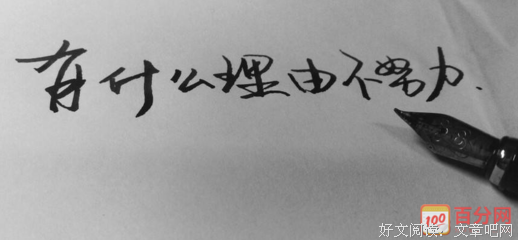 有什么理由不努力.
100
百分网
好文阅读，文章吧网